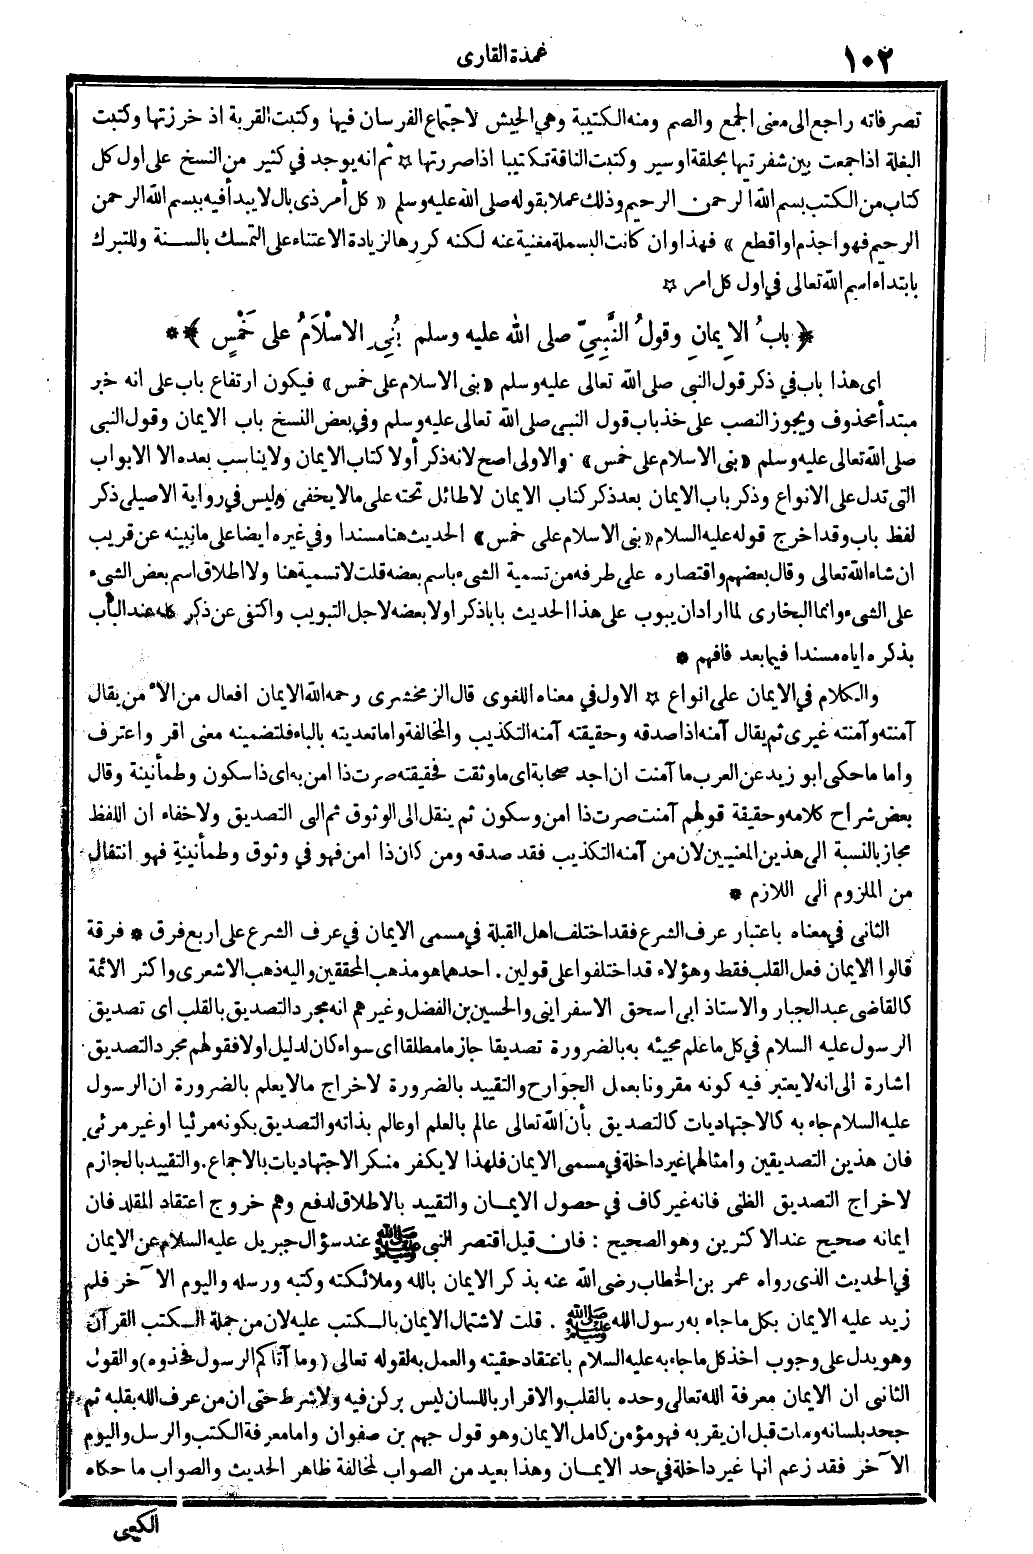 ١٠٢
عمدة القارى
تصرفاته راجع الى معنى الجمع والضم ومنه الكتيبة وهي الجيش لاجتماع الفرسان فيها وكتبت القربة اذ خرزتها وكتبت
البغلة اذا جمعت بين شفرتيها بحلقة اوسير وكتبت الناقة تكتيبا اذا صررتها ☆ ثم انه يوجد في كثير من النسخ على اول كل
كتاب من الكتب بسم الله الرحمن الرحيم وذلك عملا بقوله صلى الله عليه وسلم « كل أمر ذى بال لا يبدأ فيه ببسم الله الرحمن
الرحيم فهو اجذم او اقطع » فهذا وان كانت البسملة مغنية عنه لكنه كررها لزيادة الاعتناء على التمسك بالسنة وللتبرك
بابتداء اسم الله تعالى في اول كل امر ☆
﴿ بابُ الإيمانِ وقولُ النَّبِيِّ صلى الله عليه وسلم بُنِىَ الاسْلاَمُ على خَمْسٍ ﴾ **
اى هذا باب في ذكر قول النبى صلى الله تعالى عليه وسلم «بنى الاسلام على خمس» فيكون ارتفاع باب على انه خبر
مبتدأ محذوف ويجوز النصب على خذ باب قول النبى صلى الله تعالى عليه وسلم وفي بعض النسخ باب الايمان وقول النبى
صلى الله تعالى عليه وسلم «بنى الاسلام على خمس» والاولى اصح لانه ذكر أولا كتاب الايمان ولا يناسب بعده الا الابواب
التى تدل على الانواع وذكر باب الايمان بعد ذكر كتاب الايمان لاطائل تحته على ما لا يخفى وليس في رواية الاصيلى ذكر
لفظ باب وقد اخرج قوله عليه السلام «بنى الاسلام على خمس» الحديث هنا مسندا وفي غيره ايضا على ما نبينه عن قريب
ان شاء الله تعالى وقال بعضهم واقتصاره على طرفه من تسمية الشىء باسم بعضه قلت لا تسمية هنا ولا اطلاق اسم بعض الشىء
على الشىء وانما البخارى لما اراد ان يبوب على هذا الحديث بابا ذكر اولا بعضه لاجل التبويب واكتفى عن ذكر كله عند الباب
بذكره اياه مسندا فيما بعد فافهم *
والكلام في الايمان على انواع ☆ الاول في معناه اللغوى قال الزمخشرى رحمه الله الايمان افعال من الأمن يقال
آمنته وآمنته غيرى ثم يقال آمنه اذا صدقه وحقيقته آمنه التكذيب والمخالفة واما تعديته بالباء فلتضمينه معنى اقر واعترف
واما ما حكى ابو زيد عن العرب ما آمنت ان اجد صحابة اى ما وثقت فحقيقته صرت ذا امن به اى ذا سكون وطمأنينة وقال
بعض شراح كلامه وحقيقة قولهم آمنت صرت ذا امن وسكون ثم ينقل الى الوثوق ثم الى التصديق ولا خفاء ان اللفظ
مجاز بالنسبة الى هذين المعنيين لان من آمنه التكذيب فقد صدقه ومن كان ذا امن فهو في وثوق وطمأنينة فهو انتقال
من الملزوم الى اللازم *
الثانى في معناه باعتبار عرف الشرع فقد اختلف اهل القبلة في مسمى الايمان في عرف الشرع على اربع فرق * فرقة
قالوا الايمان فعل القلب فقط وهؤلاء قد اختلفوا على قولين . احدهما هو مذهب المحققين واليه ذهب الاشعرى واكثر الائمة
كالقاضى عبد الجبار والاستاذ ابى اسحق الاسفراينى والحسين بن الفضل وغيرهم انه مجرد التصديق بالقلب اى تصديق
الرسول عليه السلام في كل ما علم مجيئه به بالضرورة تصديقا جازما مطلقا اى سواء كان لدليل اولا فقولهم مجرد التصديق
اشارة الى انه لا يعتبر فيه كونه مقرونا بعمل الجوارح والتقييد بالضرورة لاخراج ما لا يعلم بالضرورة ان الرسول
عليه السلام جاء به كالاجتهاديات كالتصديق بأن الله تعالى عالم بالعلم او عالم بذاته والتصديق بكونه مرئيا او غير مرئى
فان هذين التصديقين وامثالهما غير داخلة في مسمى الايمان فلهذا لا يكفر منكر الاجتهاديات بالاجماع . والتقييد بالجازم
لاخراج التصديق الظنى فانه غير كاف في حصول الايمان والتقييد بالاطلاق لدفع وهم خروج اعتقاد المقلد فان
ايمانه صحيح عند الاكثرين وهو الصحيح : فان قيل اقتصر النبى ﷺ عند سؤال جبريل عليه السلام عن الايمان
في الحديث الذى رواه عمر بن الخطاب رضى الله عنه بذكر الايمان بالله وملائكته وكتبه ورسله واليوم الآخر فلم
زيد عليه الايمان بكل ما جاء به رسول الله ﷺ . قلت لاشتمال الايمان بالكتب عليه لان من جملة الكتب القرآن
وهو يدل على وجوب اخذ كل ما جاء به عليه السلام باعتقاد حقيته والعمل به لقوله تعالى (وما آتاكم الرسول فخذوه) والقول
الثانى ان الايمان معرفة الله تعالى وحده بالقلب والاقرار باللسان ليس بركن فيه ولا شرط حتى ان من عرف الله بقلبه ثم
جحد بلسانه ومات قبل ان يقر به فهو مؤمن كامل الايمان وهو قول جهم بن صفوان واما معرفة الكتب والرسل واليوم
الآخر فقد زعم انها غير داخلة في حد الايمان وهذا بعيد من الصواب لمخالفة ظاهر الحديث والصواب ما حكاه
الكعبى